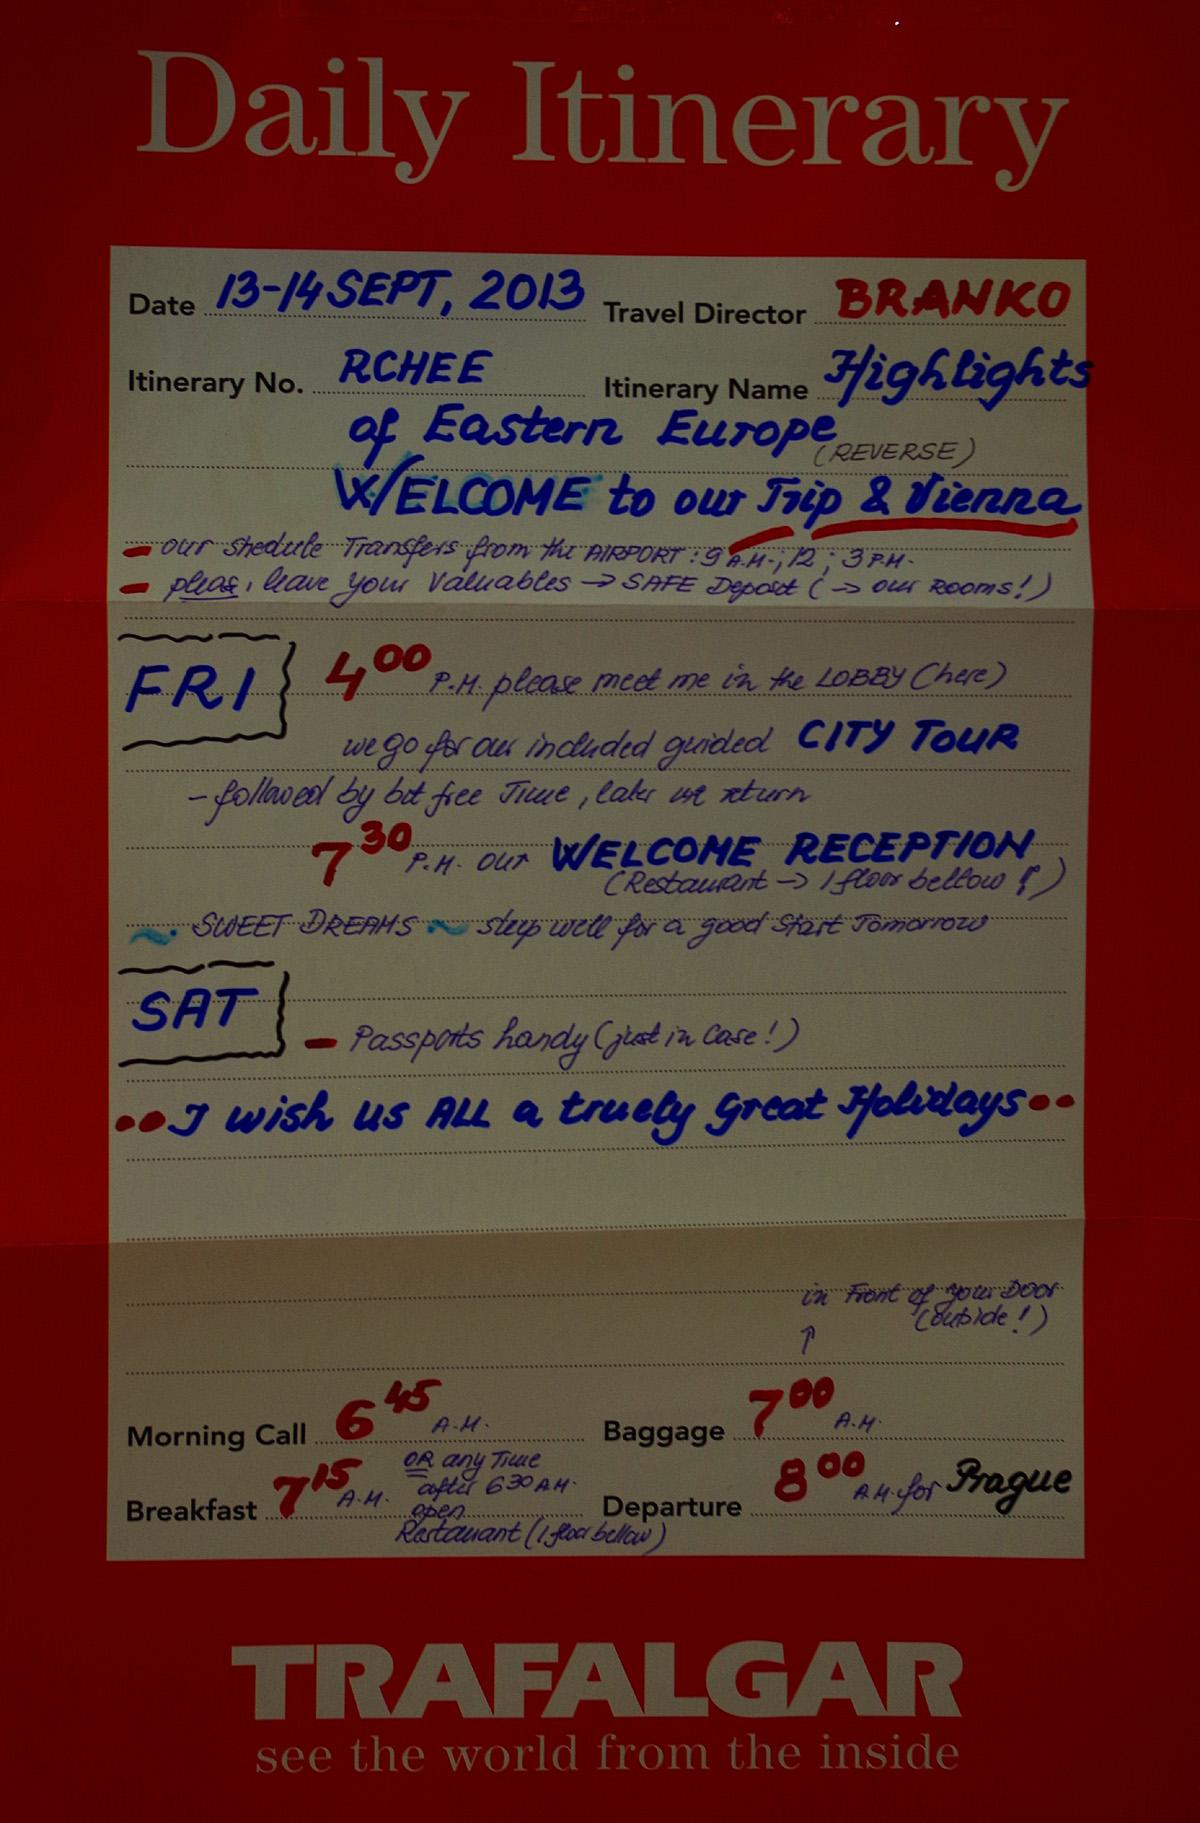 Daily Itinerary
Date 13-14 SEPT, 2013 Travel Director BRANKO
Itinerary No. RCHEE Itinerary Name Highlights
of Eastern Europe (REVERSE)
WELCOME to our Trip & Vienna
- our shedule Transfers from the AIRPORT: 9 A.M.; 12; 3 P.M.
- please, leave your Valuables → SAFE Deposit (→ our ROOMS!)
FRI 4 00 P.M. please meet me in the LOBBY (here)
we go for our included guided CITY TOUR
- followed by bit free Time, later we return
7 30 P.M. our WELCOME RECEPTION
(Restaurant → 1 floor bellow !)
~ SWEET DREAMS ~ sleep well for a good Start Tomorrow
SAT
- Passports handy (just in Case!)
•• I wish us ALL a truely Great Holidays ••
in Front of your DOOR
(outside!)
↑
Morning Call 6 45 A.M. Baggage 7 00 A.M.
Breakfast 7 15 A.M. OR any Time
after 6 30 A.M.
open
Restaurant (1 floor bellow)
Departure 8 00 A.M. for Prague
TRAFALGAR
see the world from the inside